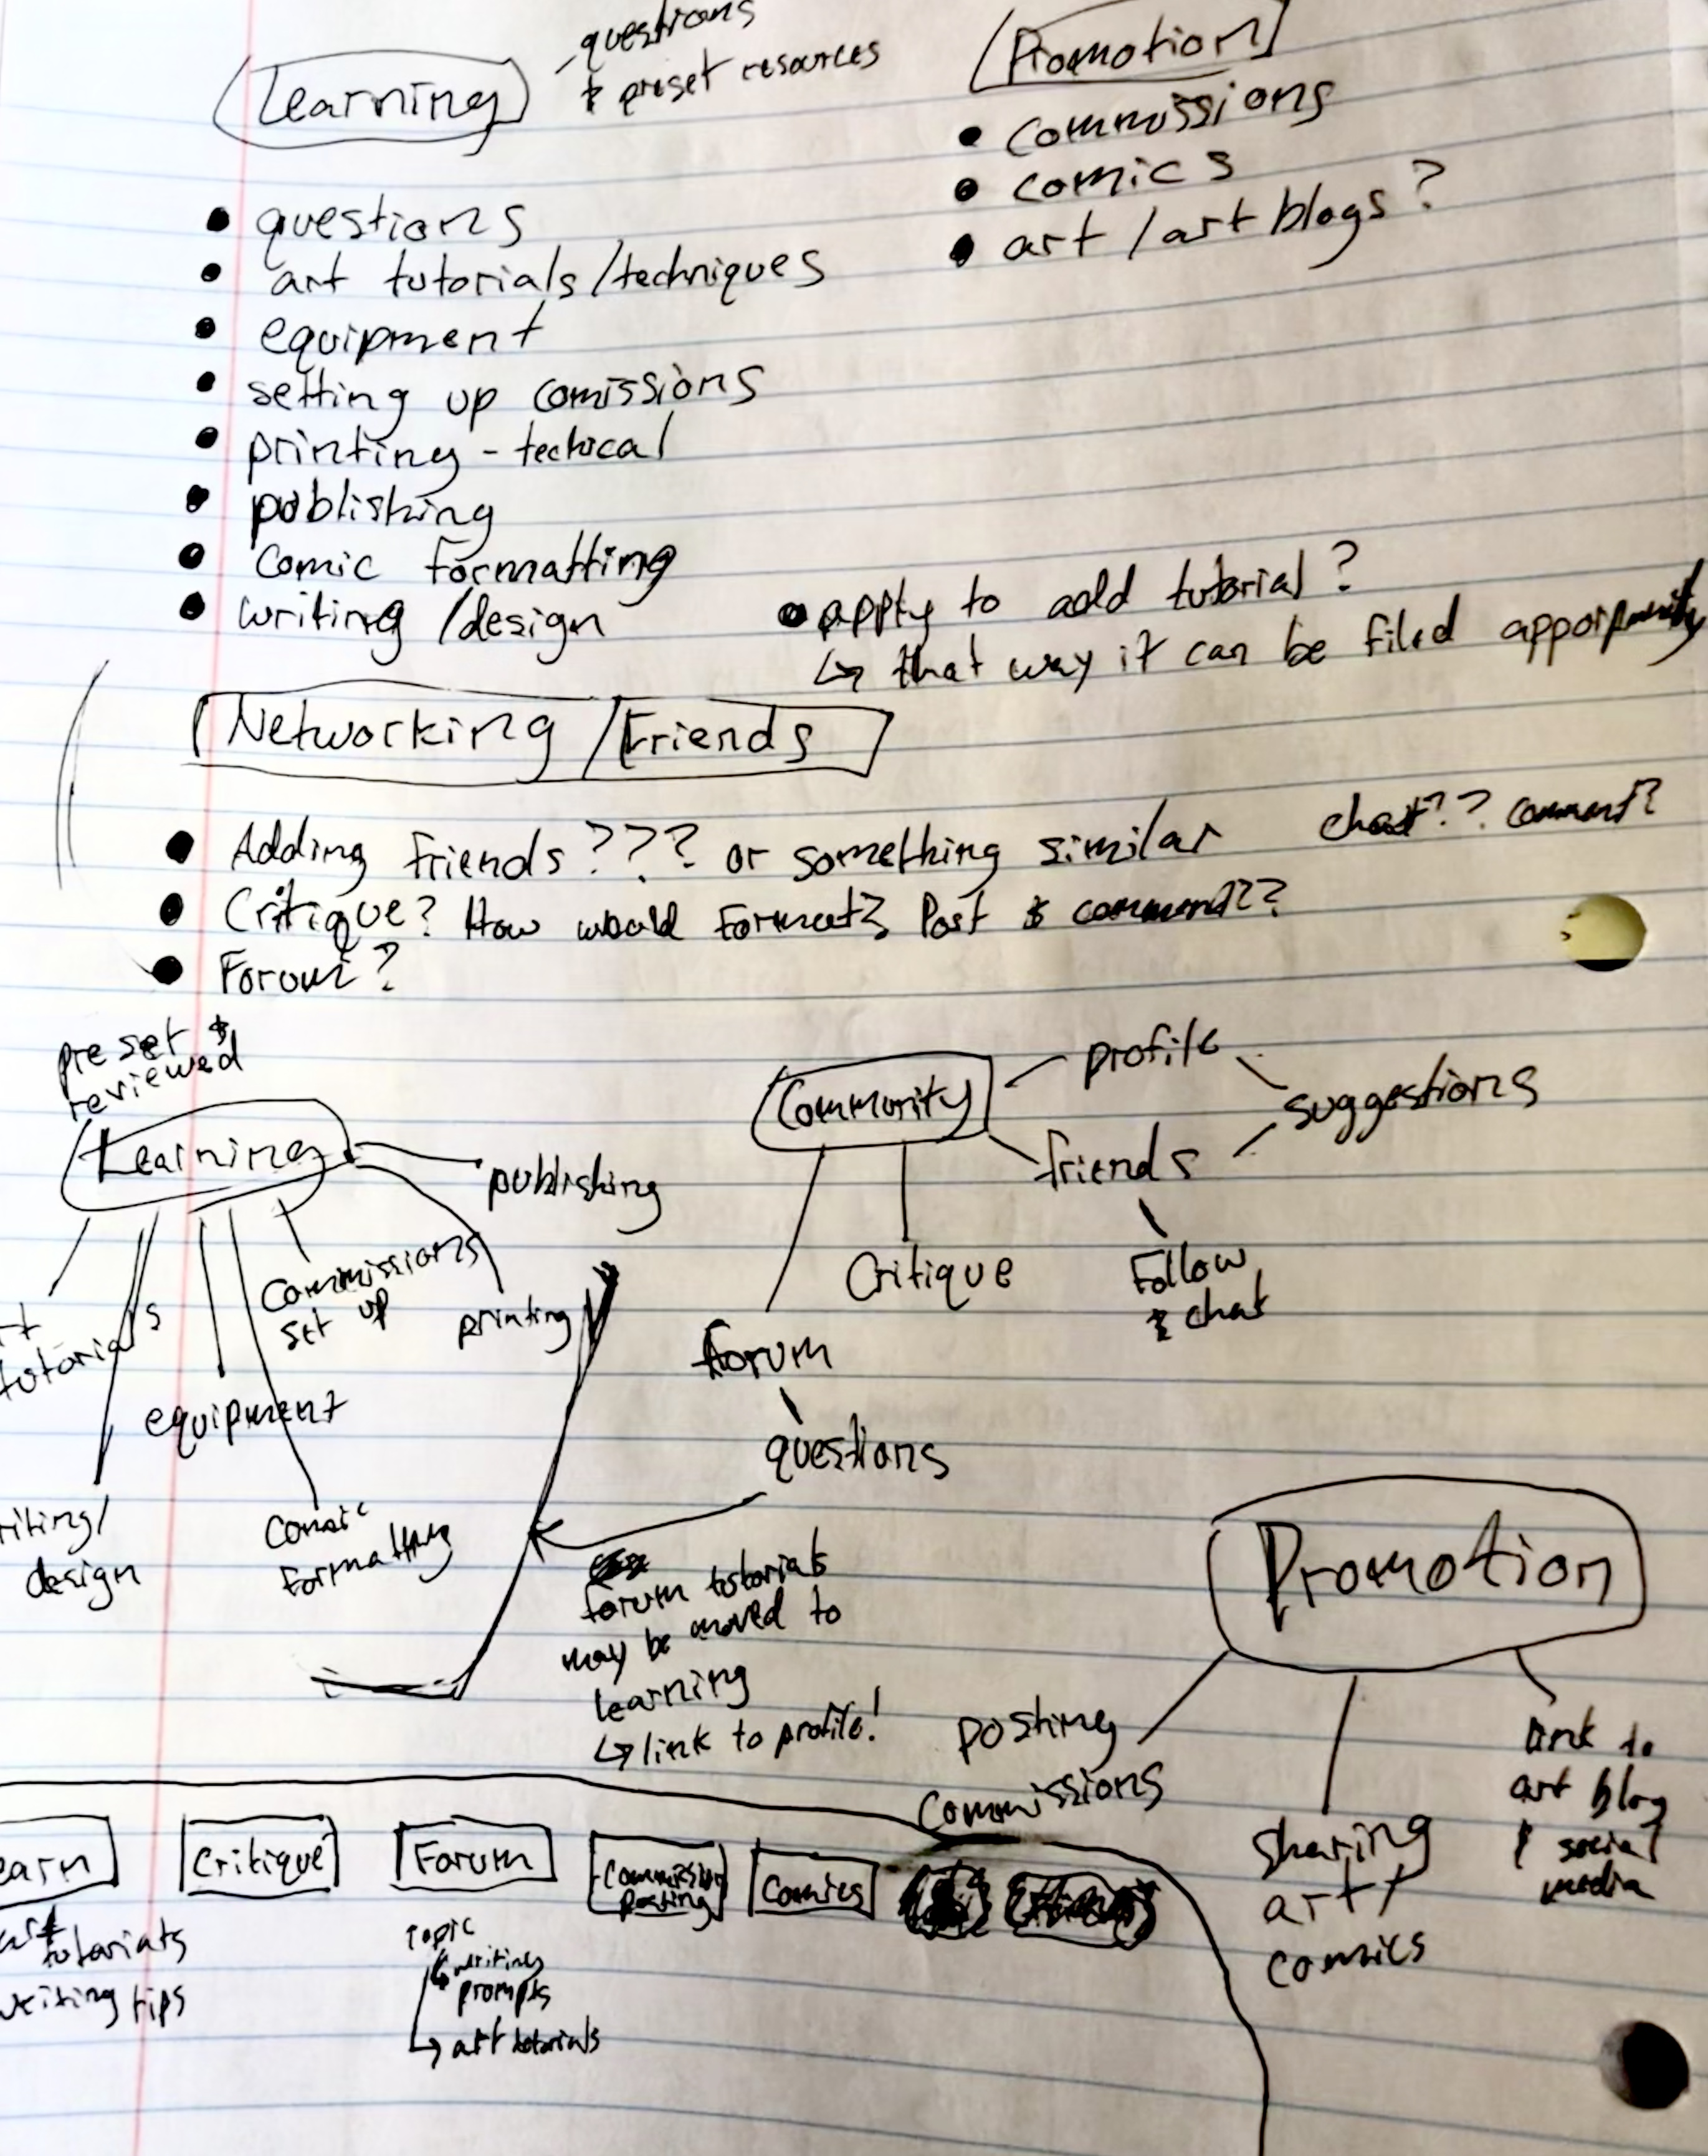 Learning
questions
& preset resources
• questions
• art tutorials/techniques
• equipment
• setting up comissions
• printing - techical
• publishing
• comic formatting
• writing /design
Promotion
• commissions
• comics
• art / art blogs?
• apply to add tutorial?
↳ that way it can be filed
Networking / Friends
• Adding friends??? or something similar chat?? comment?
• Critique? How would format? Post & comment??
• Forum?
preset &
reviewed
Learning
publishing
printing
commissions
set up
tutorials
equipment
design
comic
formatting
Community
profile
suggestions
friends
Follow
& chat
Critique
forum
questions
forum tutorials
may be moved to
learning
↳ link to profile!
Promotion
posting
commissions
sharing
art/
comics
link to
art blog
& social
media
earn
art
tutorials
writing tips
Critique
Forum
Topic
↳ writing
prompts
↳ art tutorials
Commission
Posting
Comics